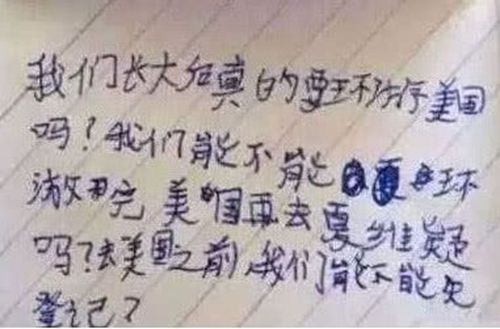 我们长大后真的要环游美国
吗?我们能不能环
游完美国再去夏维夷
吗?去美国之前,我们能不能先
登记?